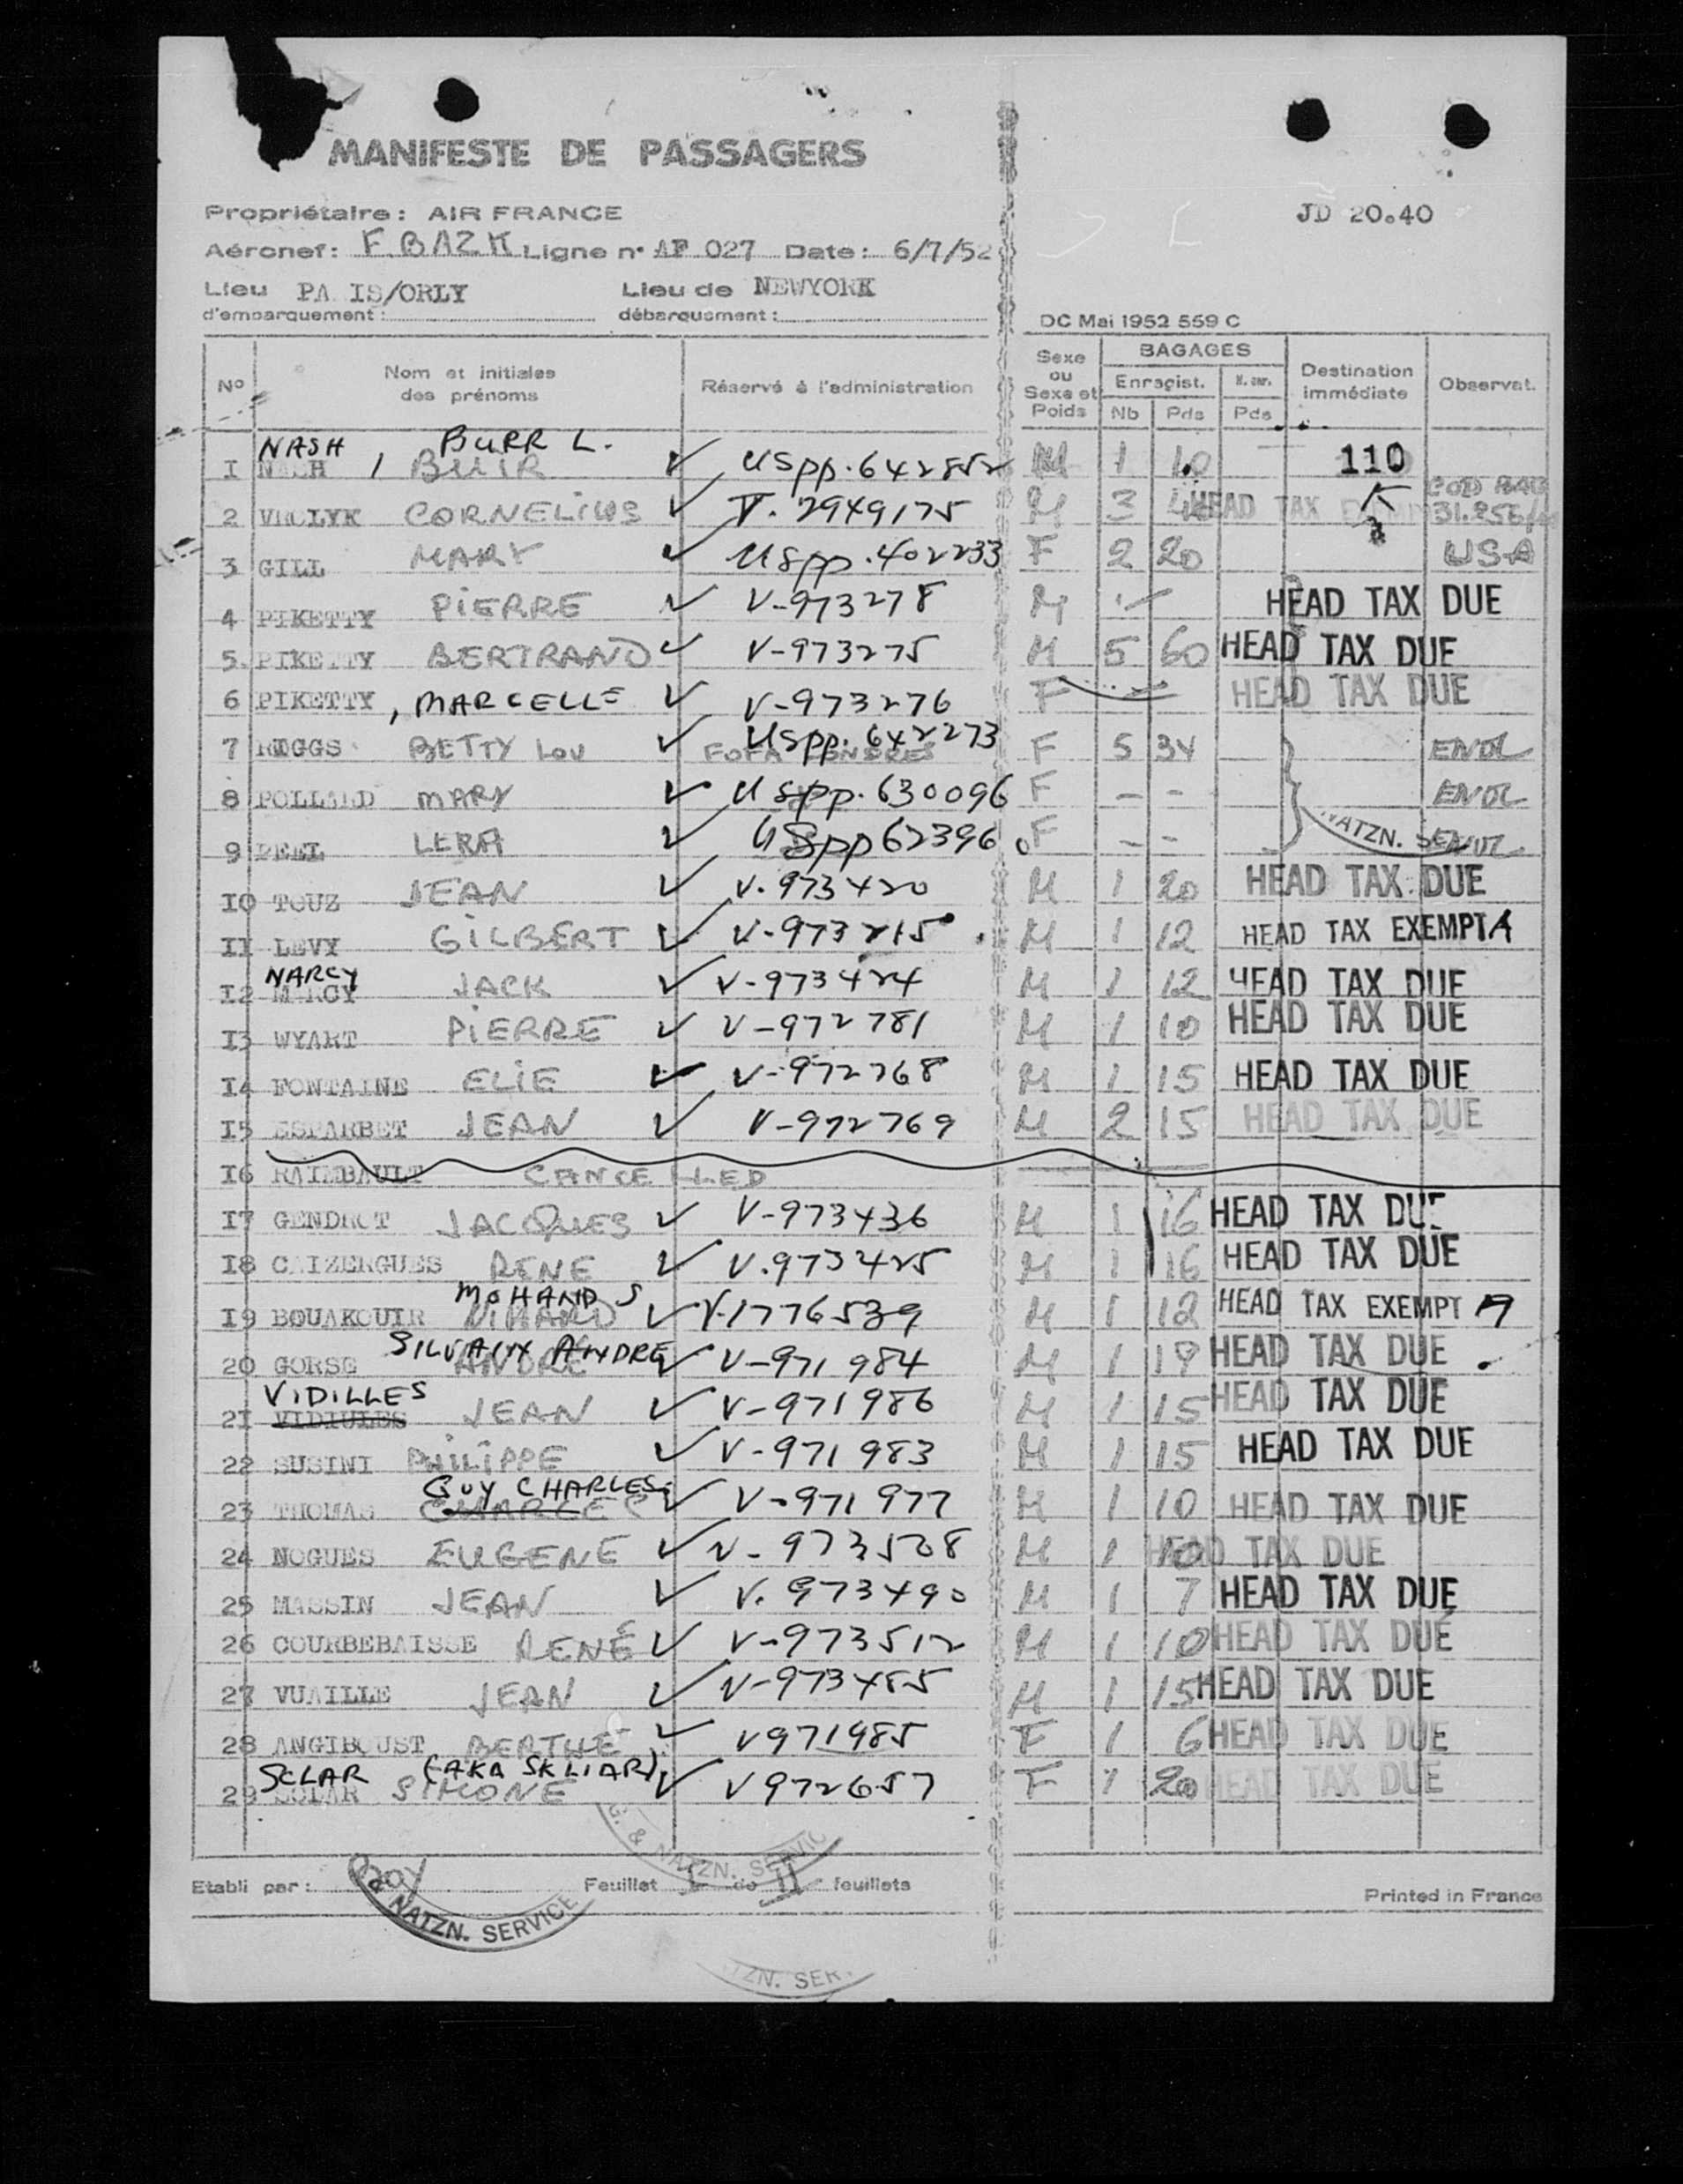 MANIFESTE DE PASSAGERS
Propriétaire : AIR FRANCE
JD 20.40
Aéronef : F. BAZK Ligne n° AF 027 Date : 6/7/52
Lieu d'embarquement : PA IS/ORLY Lieu de débarquement : NEWYORK
DC Mai 1952 559 C
N° Nom et initiales des prénoms Réservé à l'administration Sexe ou Sexe et Poids BAGAGES Enregist. Nb Pds Pds Destination immédiate Observat.
NASH , BURR L.
1 NASH / ✓ USpp. 642852 M 1 10 110
2 VROLYK CORNELIUS ✓ V. 2949175 M 3 HEAD TAX
3 GILL MARY ✓ USpp. 402233 F 2 20 USA
4 PIKETTY PIERRE ✓ V-973278 M HEAD TAX DUE
5 PIKETTY BERTRAND ✓ V-973275 M 5 60 HEAD TAX DUE
6 PIKETTY , MARCELLE ✓ V-973276 F HEAD TAX DUE
7 BETTY LOU ✓ USpp. 642273 F 5 34
8 POLLARD MARY ✓ USpp. 630096 F - -
9 PEEL ✓ USpp 623960 F - - NATZN.
10 TOUZ JEAN ✓ V. 973420 M 1 20 HEAD TAX DUE
11 LEVY GILBERT ✓ V-973215 M 1 12 HEAD TAX EXEMPT A
NARCY
12 JACK ✓ V-973424 M 1 12 HEAD TAX DUE
13 WYART PIERRE ✓ V-972781 M 1 10 HEAD TAX DUE
14 FONTAINE ELIE ✓ V-972768 M 1 15 HEAD TAX DUE
15 ESPARBET JEAN ✓ V-972769 M 2 15 HEAD TAX DUE
16 RAIMBAULT CANCELLED
17 GENDROT JACQUES ✓ V-973436 M 1 16 HEAD TAX DUE
18 CAIZERGUES RENE ✓ V.973425 M 1 16 HEAD TAX DUE
MOHAND S
19 BOUAKOUIR ✓ V-1776539 M 1 12 HEAD TAX EXEMPT A
SILVAIN ANDRE
20 GORSE ANDRE ✓ V-971984 M 1 19 HEAD TAX DUE
VIDILLES
21 VIDIULES JEAN ✓ V-971986 M 1 15 HEAD TAX DUE
22 SUSINI PHILIPPE ✓ V-971983 M 1 15 HEAD TAX DUE
GUY CHARLES
23 THOMAS CHARLES ✓ V-971977 M 1 10 HEAD TAX DUE
24 NOGUES EUGENE ✓ V-973508 M 1 10 HEAD TAX DUE
25 MASSIN JEAN ✓ V. 973490 M 1 7 HEAD TAX DUE
26 COURBEBAISSE RENÉ ✓ V-973512 M 1 10 HEAD TAX DUE
27 VUAILLE JEAN ✓ V-973485 M 1 15 HEAD TAX DUE
28 ANGIBOUST BERTHE ✓ V971985 F 1 6 HEAD TAX DUE
SCLAR (AKA SKLIAR)
29 SCLAR SIMONE ✓ V972657 F 1 20 HEAD TAX DUE
G. & NATZN. SERVIC
Etabli par : Feuillet I de II feuillets
Printed in France
& NATZN. SERVICE
TZN. SER